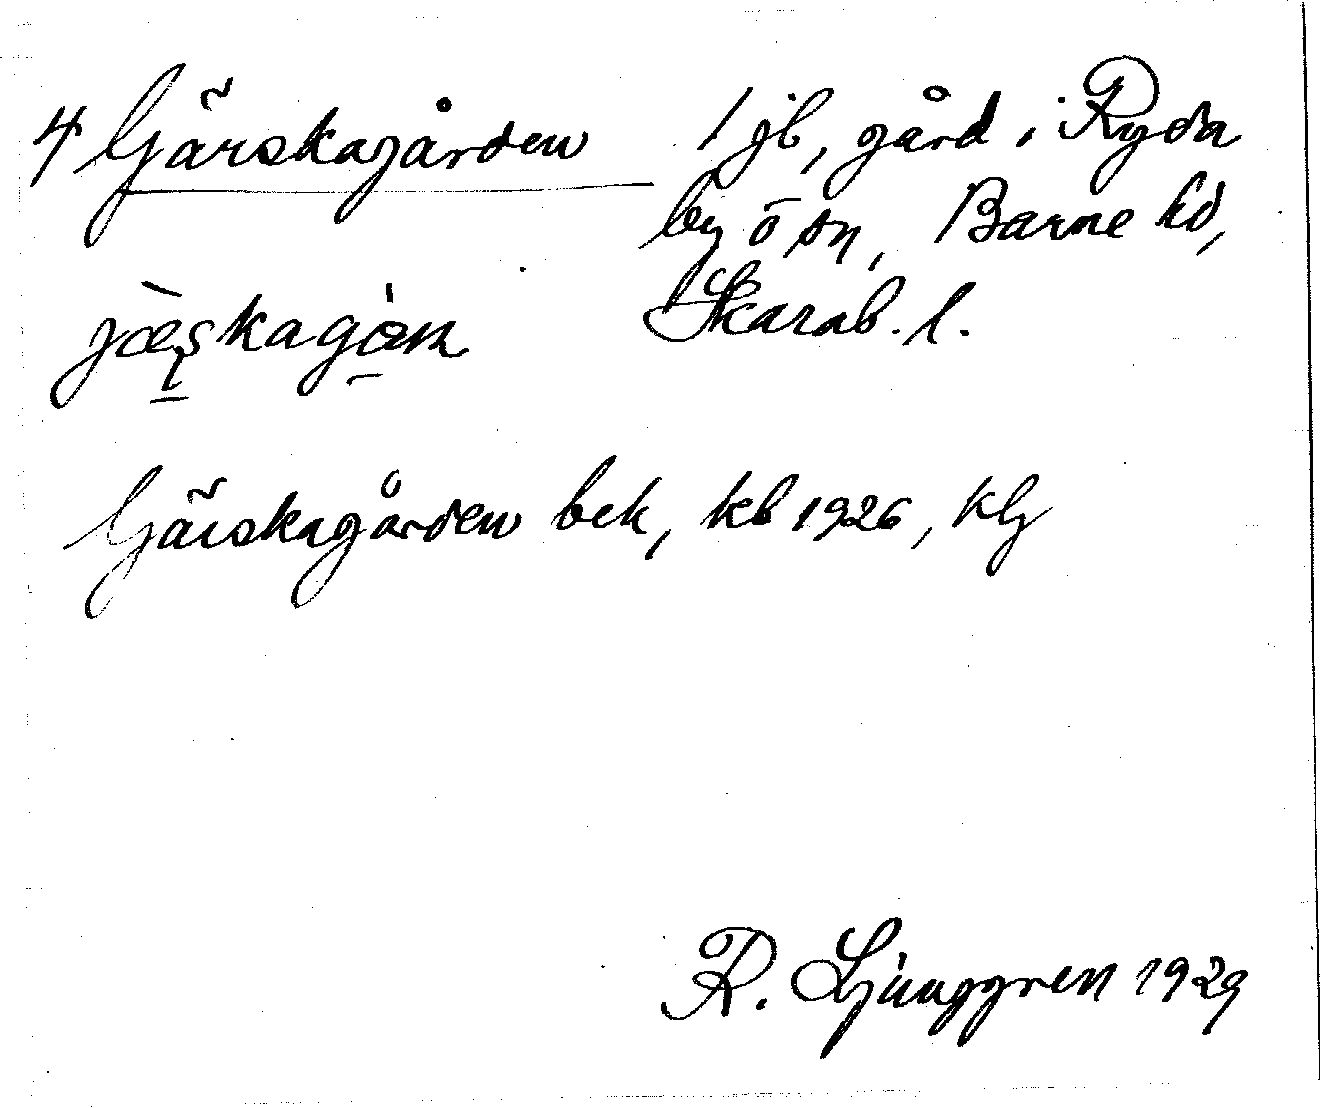 4 Gärskagården 1 jb, gård i Ryda
by o sn, Barne hd,
Skarab. l.
Gärskagården bek, kb 1926, klg
R. Ljunggren 1929